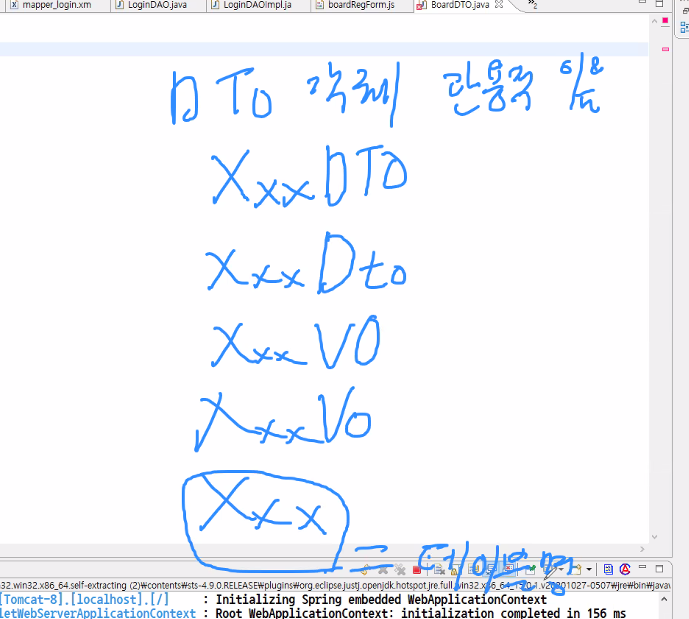 mapper_login.xm LoginDAO.java LoginDAOImpl.ja boardRegForm.js BoardDTO.java »2
DTO 객체 관용적
XxxDTO
XxxDto
XxxVO
XxxVo
Xxx = 테이블명
32.win32.x86_64.self-extracting (2)₩contents₩sts-4.9.0.RELEASE₩plugins₩org.eclipse.justj.openjdk.hotspot.jre.full.win32.x86_64_15.0.1.v20201027-0507₩jre₩bin₩javaw
[Tomcat-8].[localhost].[/] : Initializing Spring embedded WebApplicationContext
letWebServerApplicationContext : Root WebApplicationContext: initialization completed in 156 ms